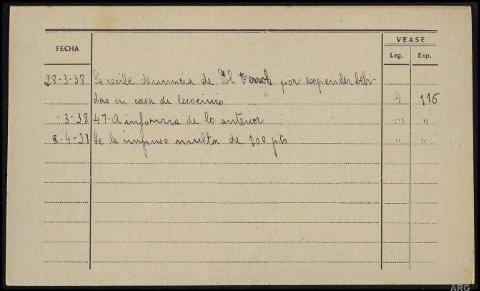 VEASE
FECHA
Leg. Exp.
28-3-38 Se recibe denuncia de El Ferrol por expender bebi-
das en casa de lenocinio 4 116
-3-38 47-A informa de lo anterior " "
8-4-38 Se le impuso multa de 100 pts " "
ARG